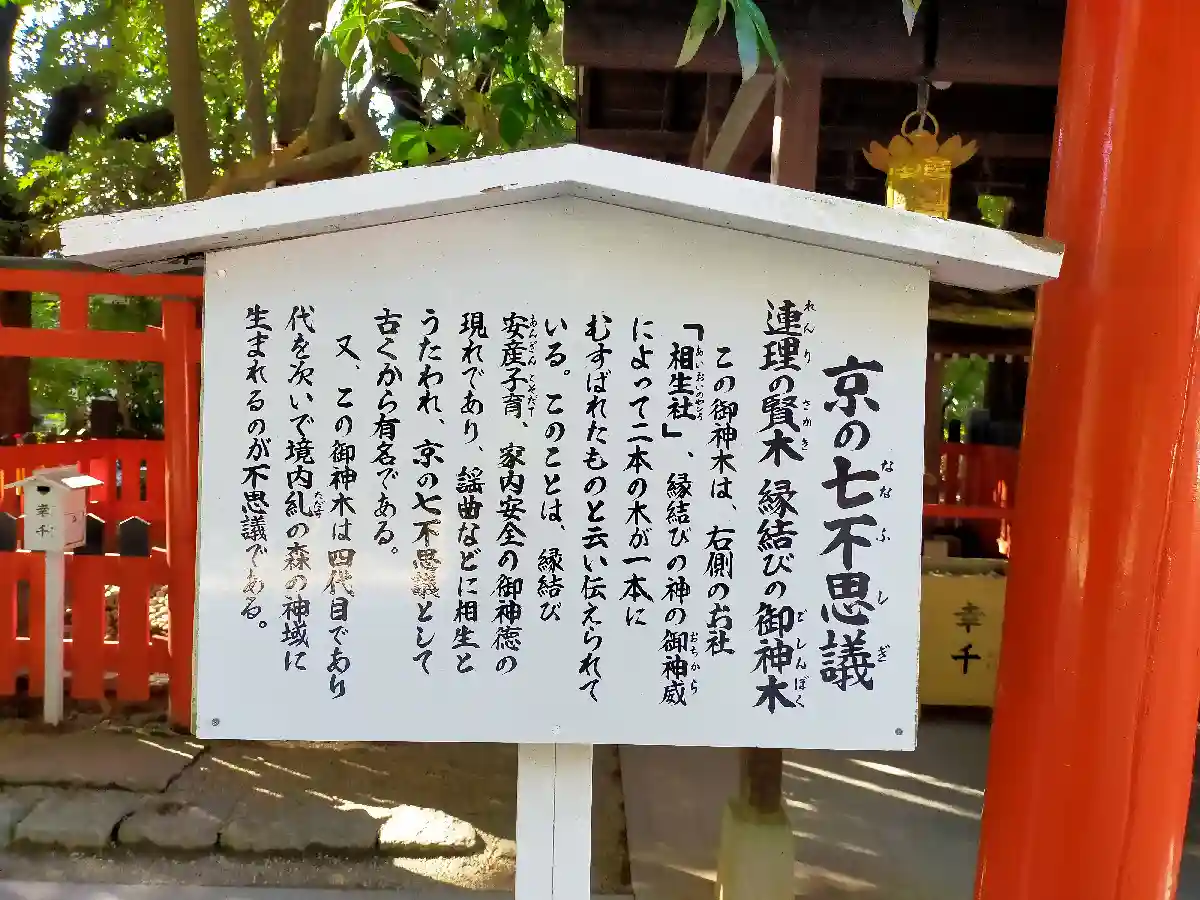 京の七不思議
連理の賢木 縁結びの御神木
この御神木は、右側のお社
「相生社」、縁結びの神の御神威
によって二本の木が一本に
むすばれたものと云い伝えられて
いる。このことは、縁結び
安産子育、家内安全の御神徳の
現れであり、謡曲などに相生と
うたわれ、京の七不思議として
古くから有名である。
又、この御神木は四代目であり
代を次いで境内糺の森の神域に
生まれるのが不思議である。
幸千
幸千